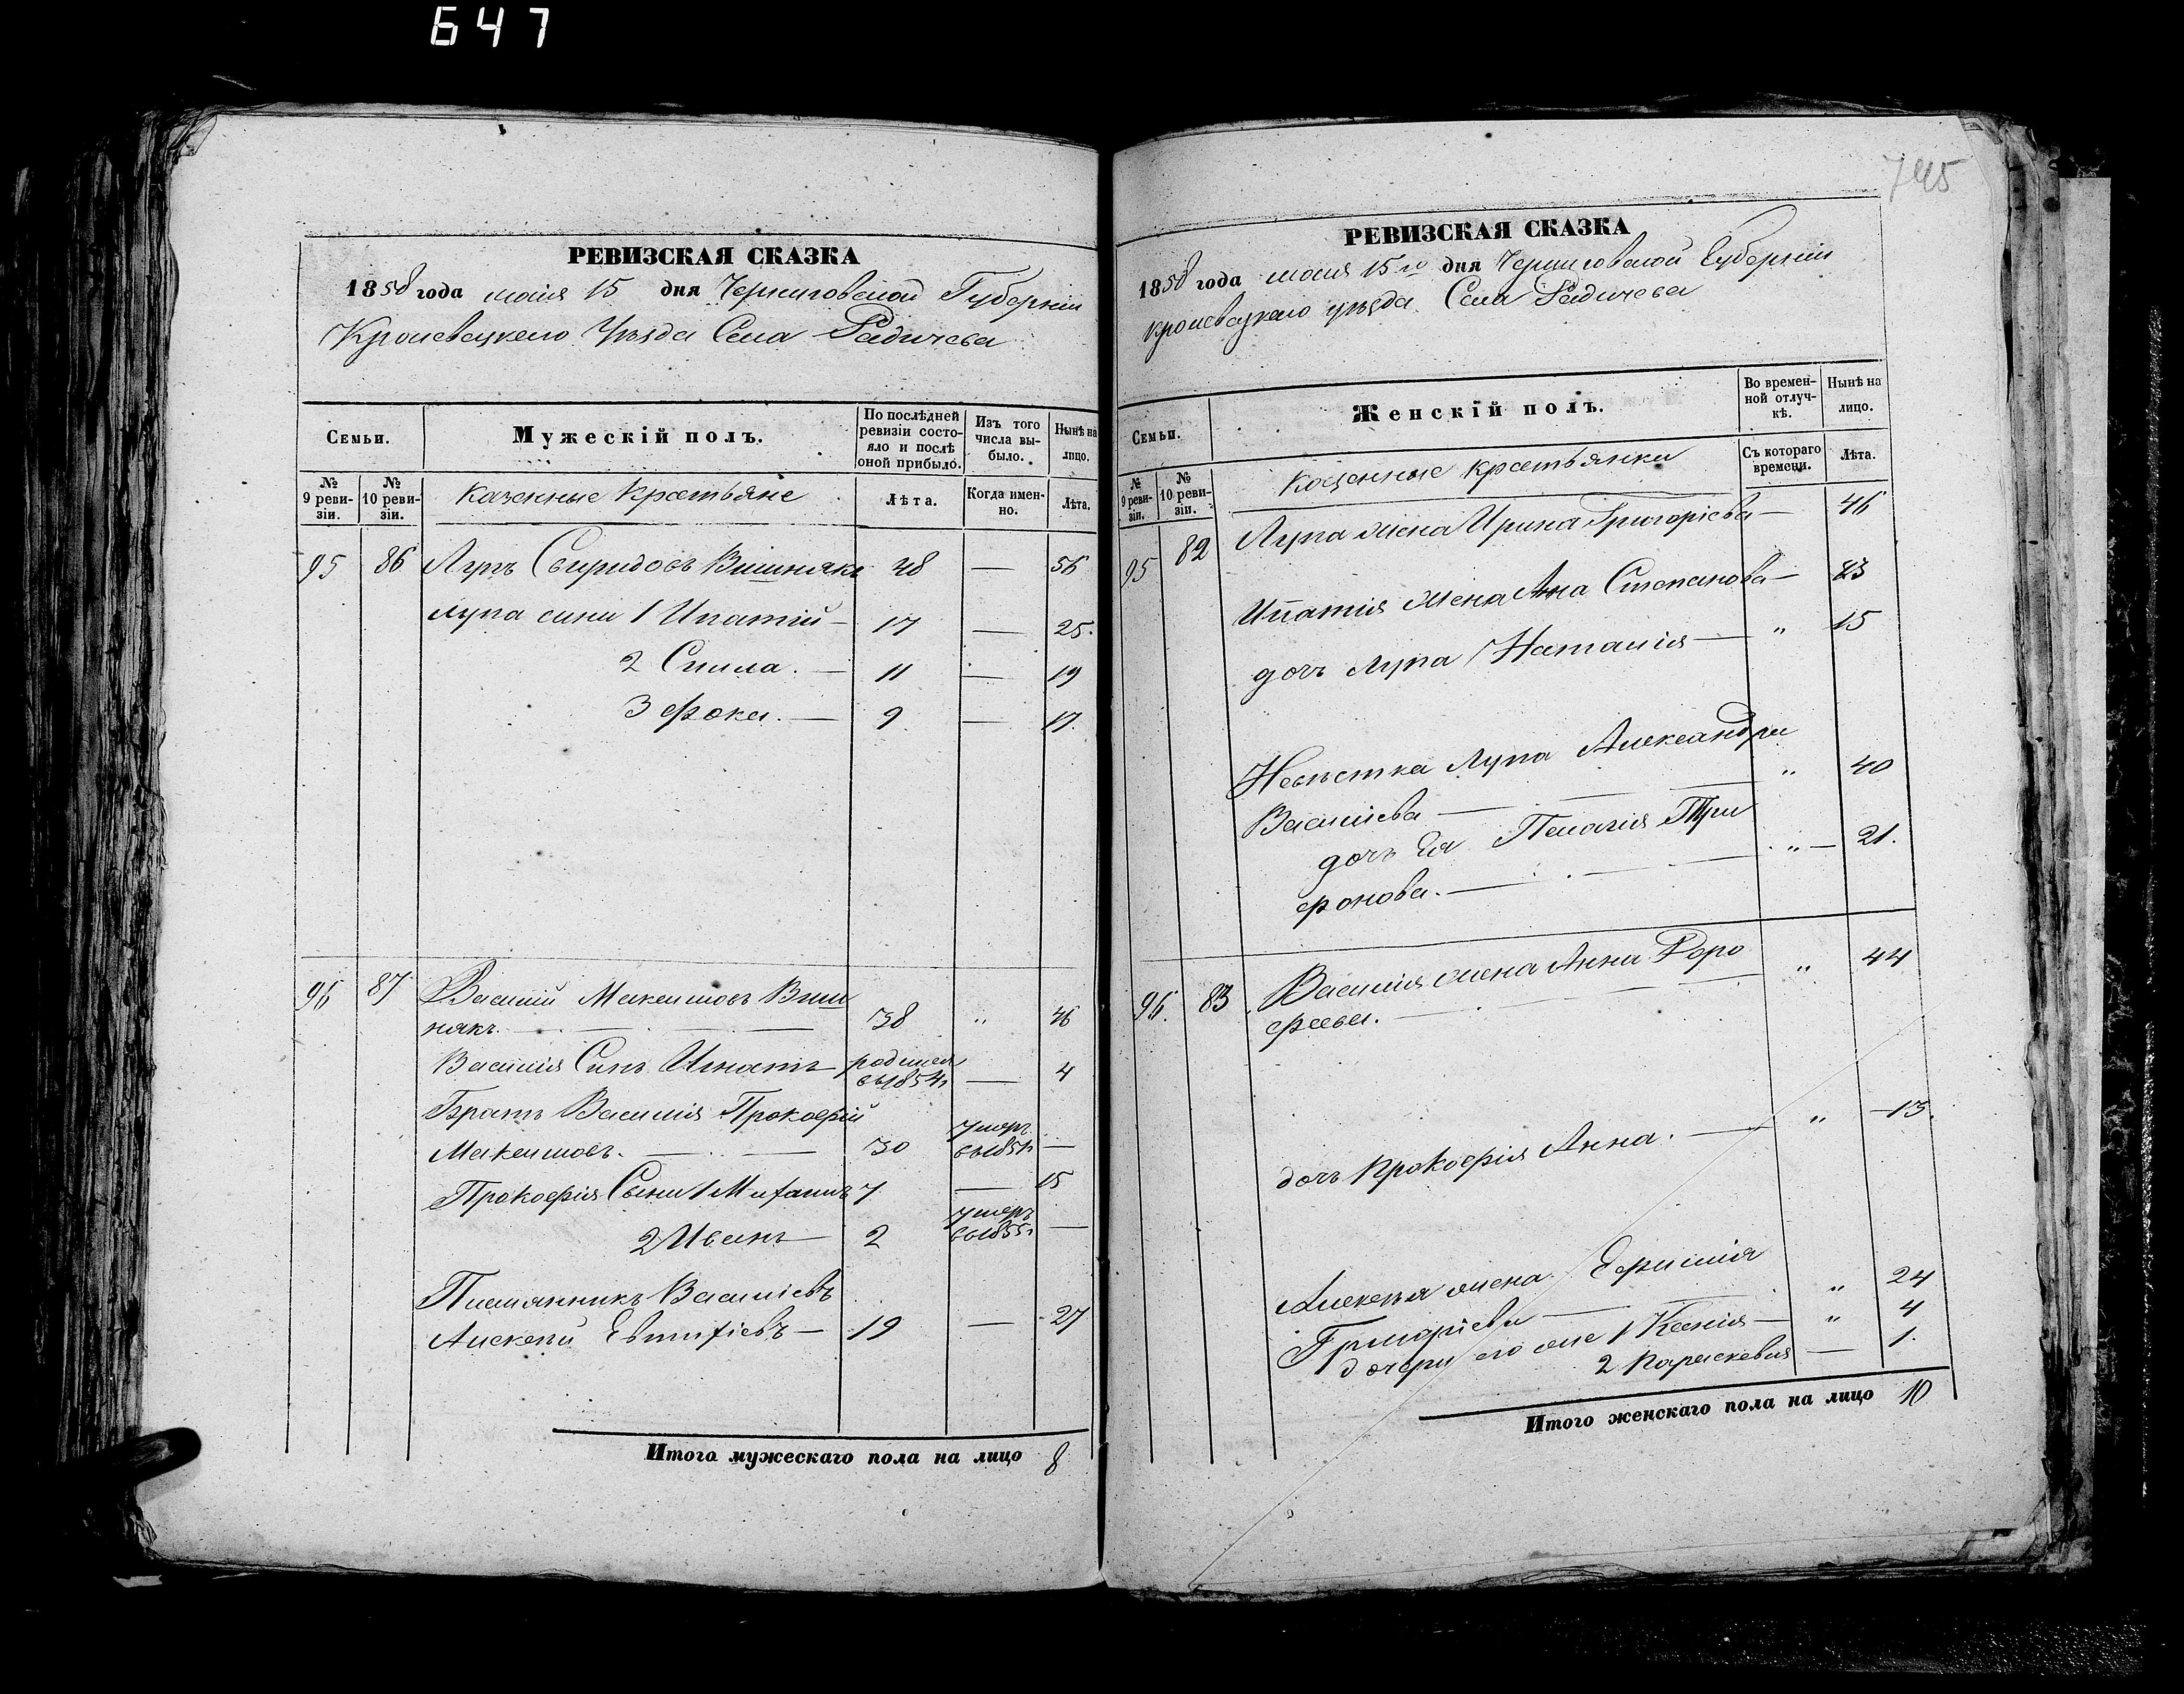 647
745
РЕВИЗСКАЯ СКАЗКА
1858 года маія 15 дня Черниговской Губерніи
Кролевецкаго Уѣзда Села Радичева
Семьи.
Мужескій полъ.
По послѣдней ревизіи состояло и послѣ оной прибыло.
Изъ того числа выбыло.
Нынѣ на лицо.
№ 9 ревизіи.
№ 10 ревизіи.
Казенные Крестьяне
Лѣта.
Когда именно.
Лѣта.
95 86 Лупъ Свиридовъ Вишнякъ 48 — 56
Лупа сини 1 Ипатій — 17 — 25.
2 Сиила. — 11 — 19
3 Фока. — 9 — 17.
96 87 Василій Максимовъ Виш
някъ. — 38 " 46
Василія Синъ Игнатъ родился въ 1854г — 4
Братъ Василія Прокофій
Максимовъ. — 30 умеръ въ 1851г —
Прокофія Сыни 1 Митофанъ 7 — 15
2 Иванъ — 2 умеръ въ 1855г —
Племянникъ Василіевъ
Алексѣй Евтифіевъ — 19 — 27
Итого мужескаго пола на лицо 8
РЕВИЗСКАЯ СКАЗКА
1858 года маия 15го дня Черниговской Губерніи
Кролевецкаго уѣзда Села Радичева
Семьи.
Женскій полъ.
Во временной отлучкѣ.
Нынѣ на лицо.
№ 9 ревизіи.
№ 10 ревизіи.
Козенные крестьянки
Съ котораго времени.
Лѣта.
95 82 Лупа жена Ирина Григоріева — 46
Ипатія жена Ана Степанова — 23
дочь Лупа Наталія — " 15
Невѣстка Лупа Александра
Василіева — " 40
дочь Ея Пелагія Три
фонова. — " — 21.
96. 83 Василія жена Анна Доро
феева. — " 44
дочь Прокофія Анна. — " 13.
Алексѣя жена Ефимія
Григоріева — " 24
дочери его же 1 Ксенія — " 4
2 Параскевия — 1.
Итого женскаго пола на лицо 10